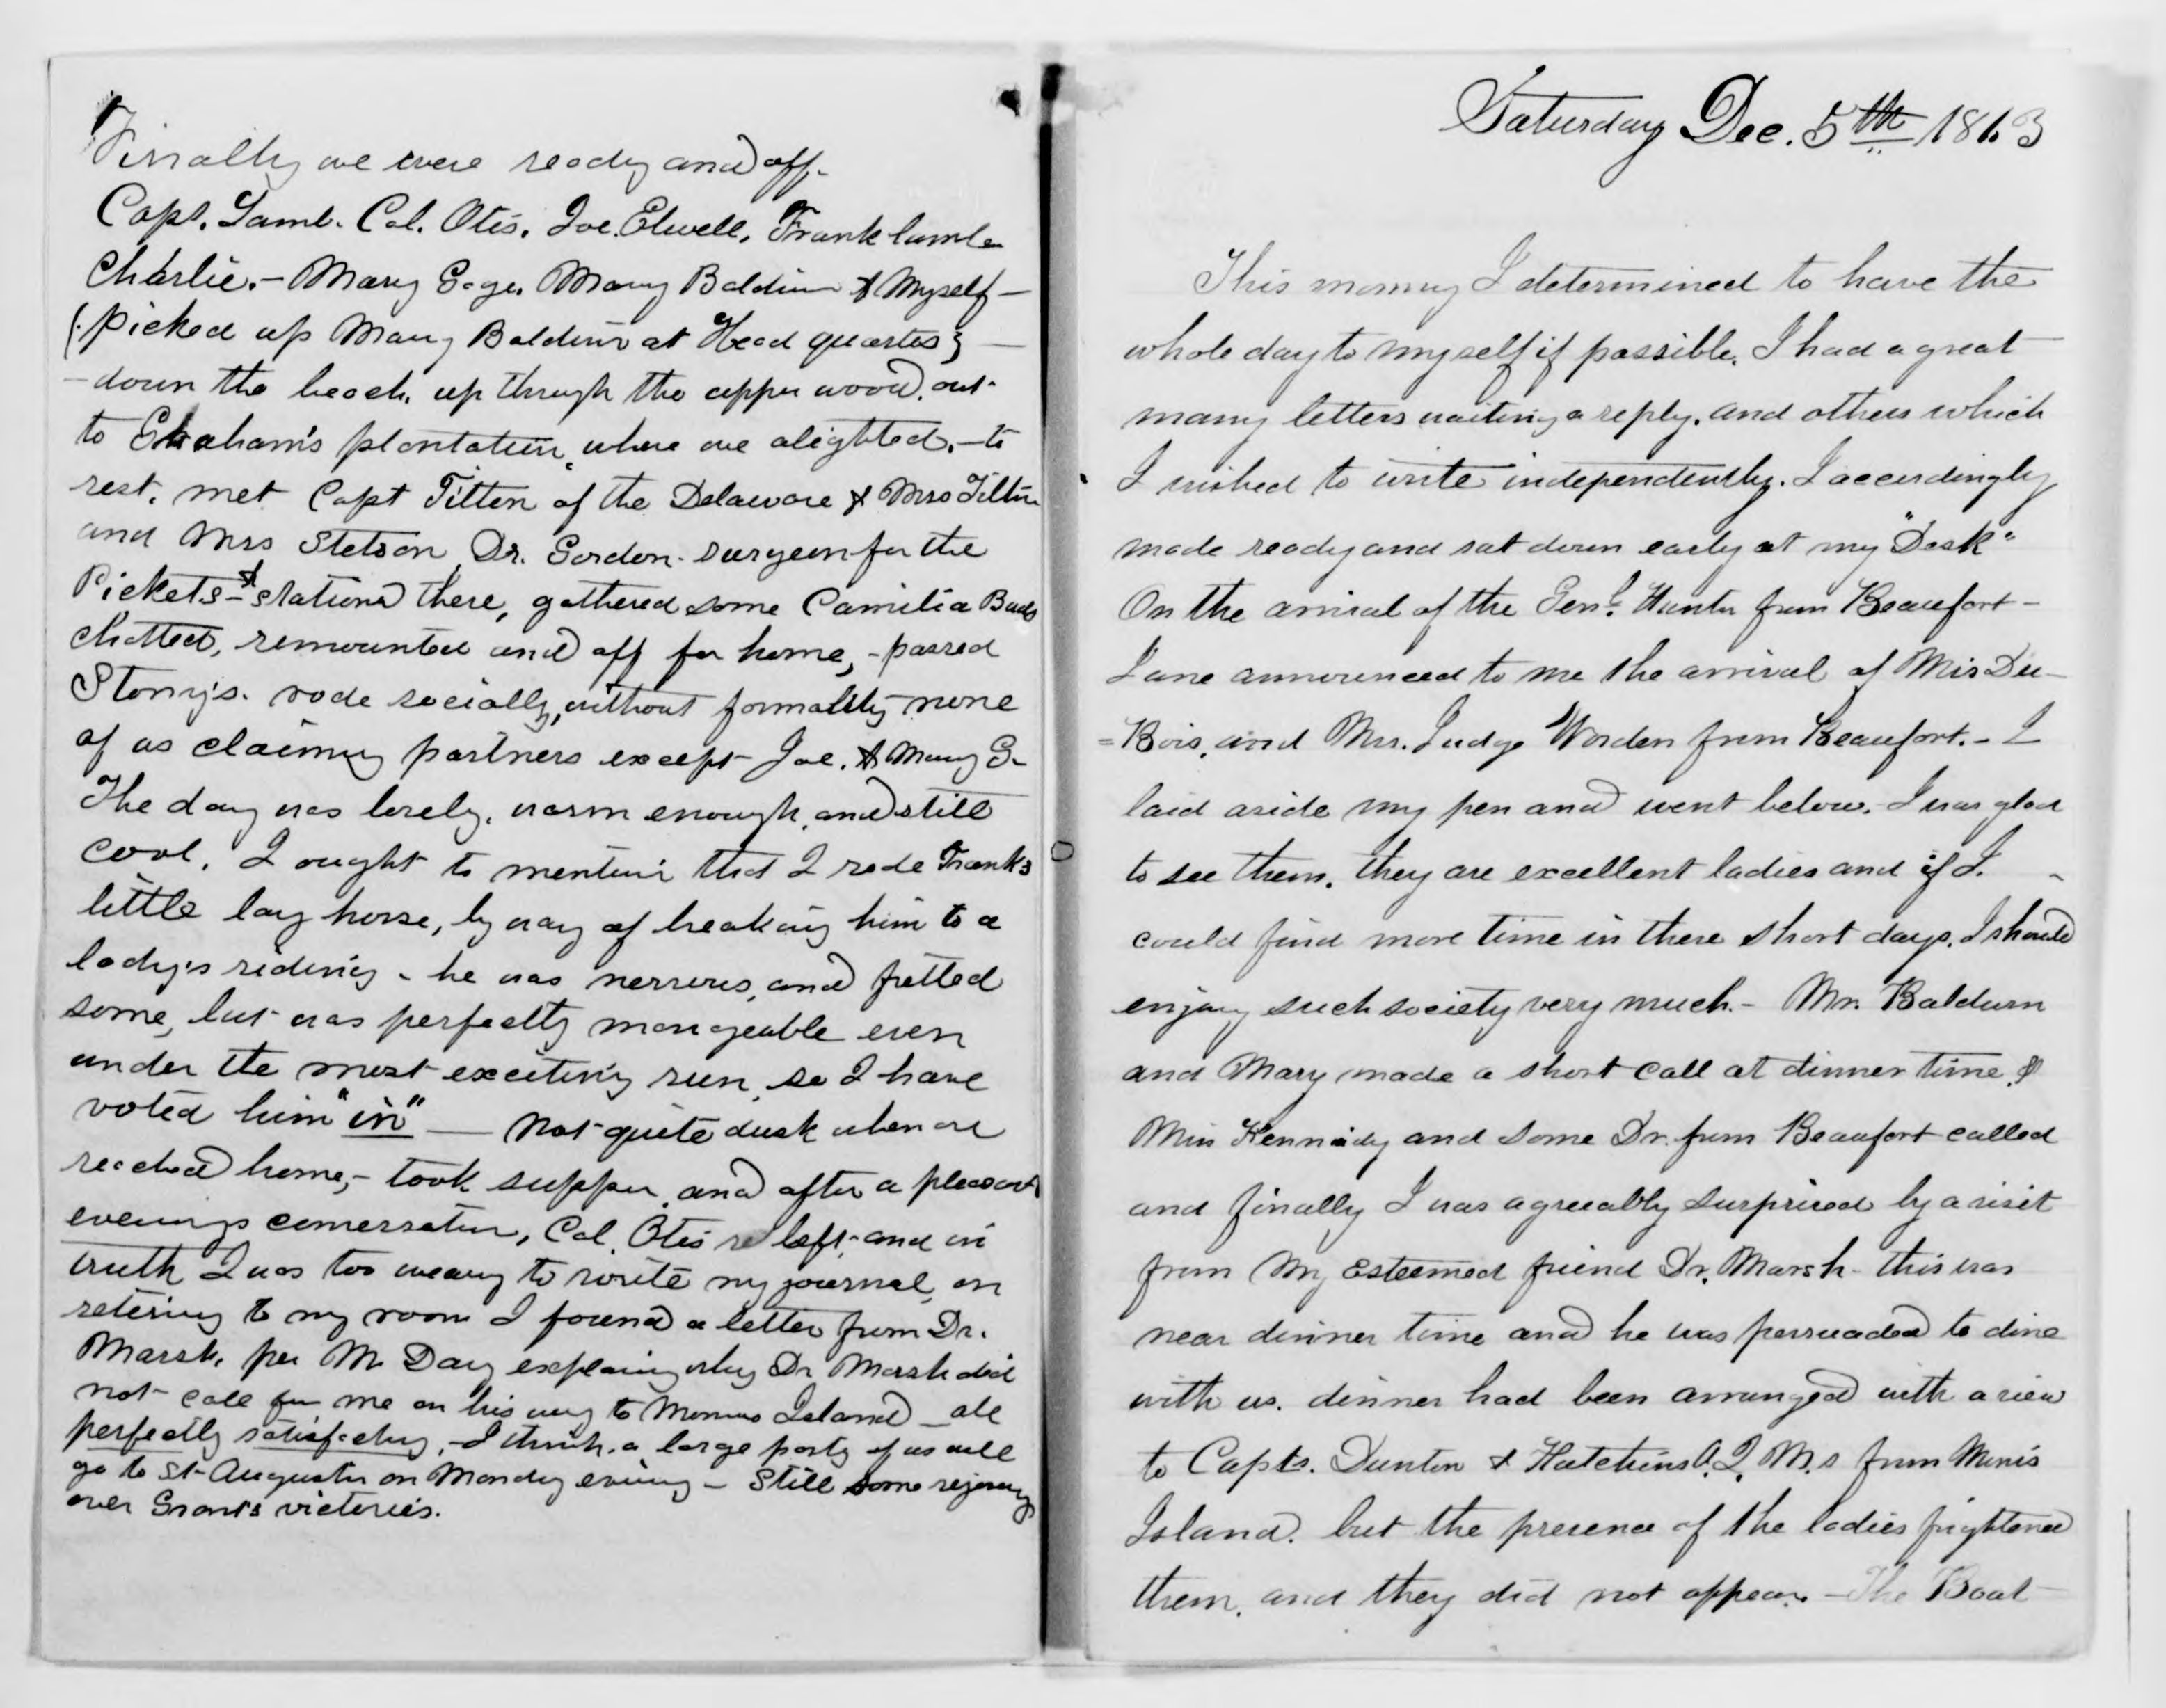 Finally we were ready and off.
Capt. Lamb. Col. Otis. Joe. Elwell, Frank Lamb &
Charlie. - Mary Gage. Mary Baldwin & Myself -
(picked up Mary Baldwin at Head quarters) -
- down the beach. up through the upper wood. out
to plantation, where we alighted, - to
rest. met Capt Titten of the Delaware &
and Mrs Stetson Dr. Gordon - surgeon for the
Pickets - & stationed there, gathered some Camilia Buds
chatted, remounted and off for home, - passed
Stony's. rode socially, without formality none
of us claiming partners except Joe. & Mary G.
The day was lovely, warm enough, and still
cool. I ought to mention that I rode Franks
little bay horse, by way of breaking him to a
lady's riding - he was nervous, and fretted
some, but was perfectly manageable even
under the most exciting run, so I have
voted him "in" — Not quite dusk when we
reached home, - took supper, and after a pleasant
evenings conversation, Col. Otis left, and in
truth I was too weary to write my journal, on
retiring to my room I found a letter from Dr.
Marsh, per Mr Day explaining why Dr Marsh did
not call for me on his way to Morris Island - all
perfectly satisfactory, - I think, a large party of us will
go to St. Augustin on Monday evening - Still some rejoicing
over Grant's victories.
Saturday Dec. 5th 1863
This morning I determined to have the
whole day to myself if possible. I had a great
many letters waiting a reply, and others which
I wished to write independently. I accordingly
made ready and sat down early at my "Desk"
On the arrival of the Genl. Hunter from Beaufort -
Jane announced to me the arrival of Mis Du-
=Bois, and Mrs. Judge Worden from Beaufort. - I
laid aside my pen and went below. - I was glad
to see them. they are excellent ladies and if I.
could find more time in these short days, I should
enjoy such society very much. - Mr. Baldwin
and Mary made a short call at dinner time &
Miss Kennedy and some Dr. from Beaufort called
and finally I was agreeably surprised by a visit
from my esteemed friend Dr. Marsh - this was
near dinner time and he was persuaded to dine
with us. dinner had been arranged with a view
to Capts. Dunton & Hutchins A.Q.M.s from Morris
Island. but the presence of the ladies frightened
them, and they did not appear. - The Boat